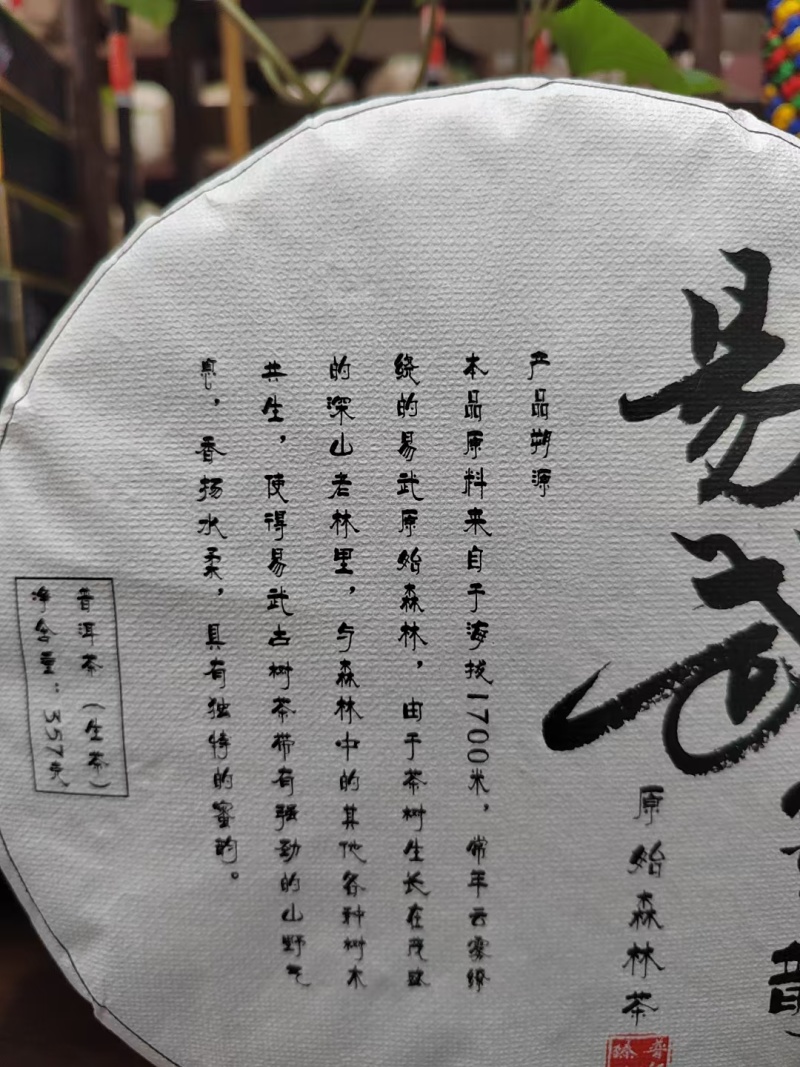 易武
原始森林茶
产品朔源
本品原料来自于海拔1700米，常年云雾缭
绕的易武原始森林，由于茶树生长在茂盛
的深山老林里，与森林中的其他各种树木
共生，使得易武古树茶带有强劲的山野气
息，香扬水柔，具有独特的蜜韵。
普洱茶（生茶）
净含量：357克